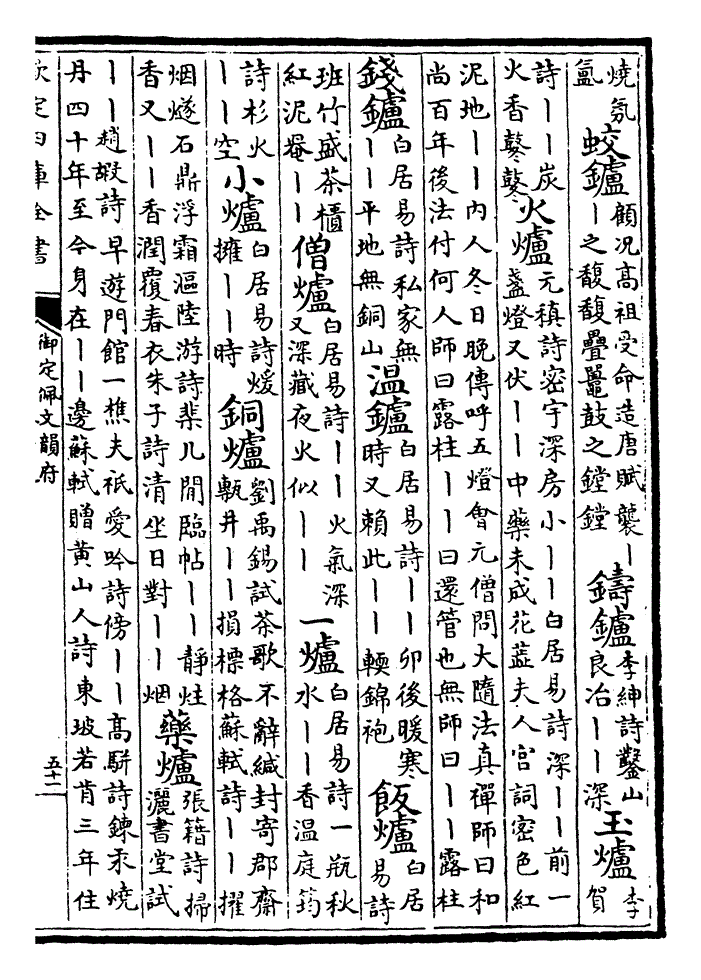 燒氛
氲
蛟鑪
顧况高祖受命造唐賦襲丨
丨之馥馥疊鼉鼓之鏜鏜
鑄鑪
李紳詩鑿山
良冶丨丨深
玉爐
李
賀
詩丨丨炭
火香鼕鼕
火爐
元稹詩密宇深房小丨丨白居易詩深丨丨前一
盞燈又伏丨丨中藥未成花蕋夫人宫詞密色紅
泥地丨丨内人冬日晚傳呼五燈會元僧問大隨法真禪師曰和
尚百年後法付何人師曰露柱丨丨曰還管也無師曰丨丨露柱
錢鑪
白居易詩私家無
丨丨平地無銅山
温鑪
白居易詩丨丨卯後暖寒
時又賴此丨丨輭錦袍
飯爐
白居
易詩
班竹盛茶櫃
紅泥罨丨丨
僧爐
白居易詩丨丨火氣深
又深藏夜火似丨丨
一爐
白居易詩一瓶秋
水丨丨香温庭筠
詩杉火
丨丨空
小爐
白居易詩煖
擁丨丨時
銅爐
劉禹錫試茶歌不辭緘封寄郡齋
甎井丨丨損標格蘇軾詩丨丨擢
烟燧石鼎浮霜漚陸游詩棐几閒臨帖丨丨靜炷
香又丨丨香潤覆春衣朱子詩清坐日對丨丨烟
藥爐
張籍詩掃
灑書堂試
丨丨趙嘏詩早遊門館一樵夫祇愛吟詩傍丨丨高駢詩鍊汞燒
丹四十年至今身在丨丨邊蘇軾贈黄山人詩東坡若肯三年住
欽定四庫全書
御定佩文韻府
五十一